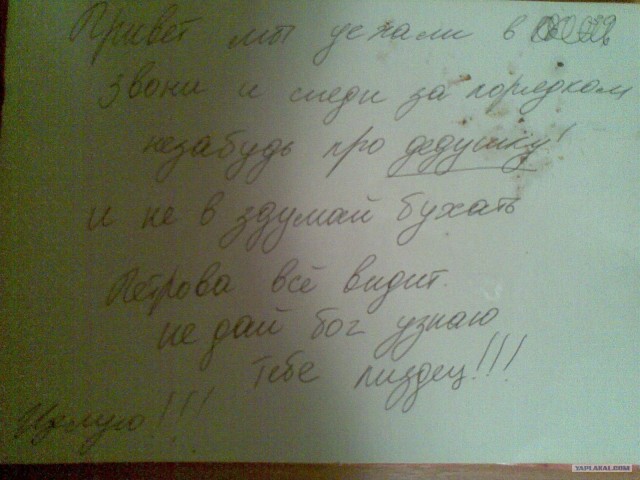 Привет мы уехали в
Звони и следи за порядком
незабудь про дедушку!
и не в здумай бухать
Петрова всё видит.
не дай бог узнаю
тебе пиздец!!!
Целую!!!
YAPLAKAL.COM